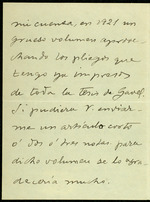 mi cuenta, en 1921 un
grueso volumen aprove
chando los pliegos que
tengo ya impresos
de toda la tesis de Gavel.
Si pudiera V. enviar-
me un artículo corto
ó dos ó tres notas para
dicho volumen se lo agra-
decería mucho.